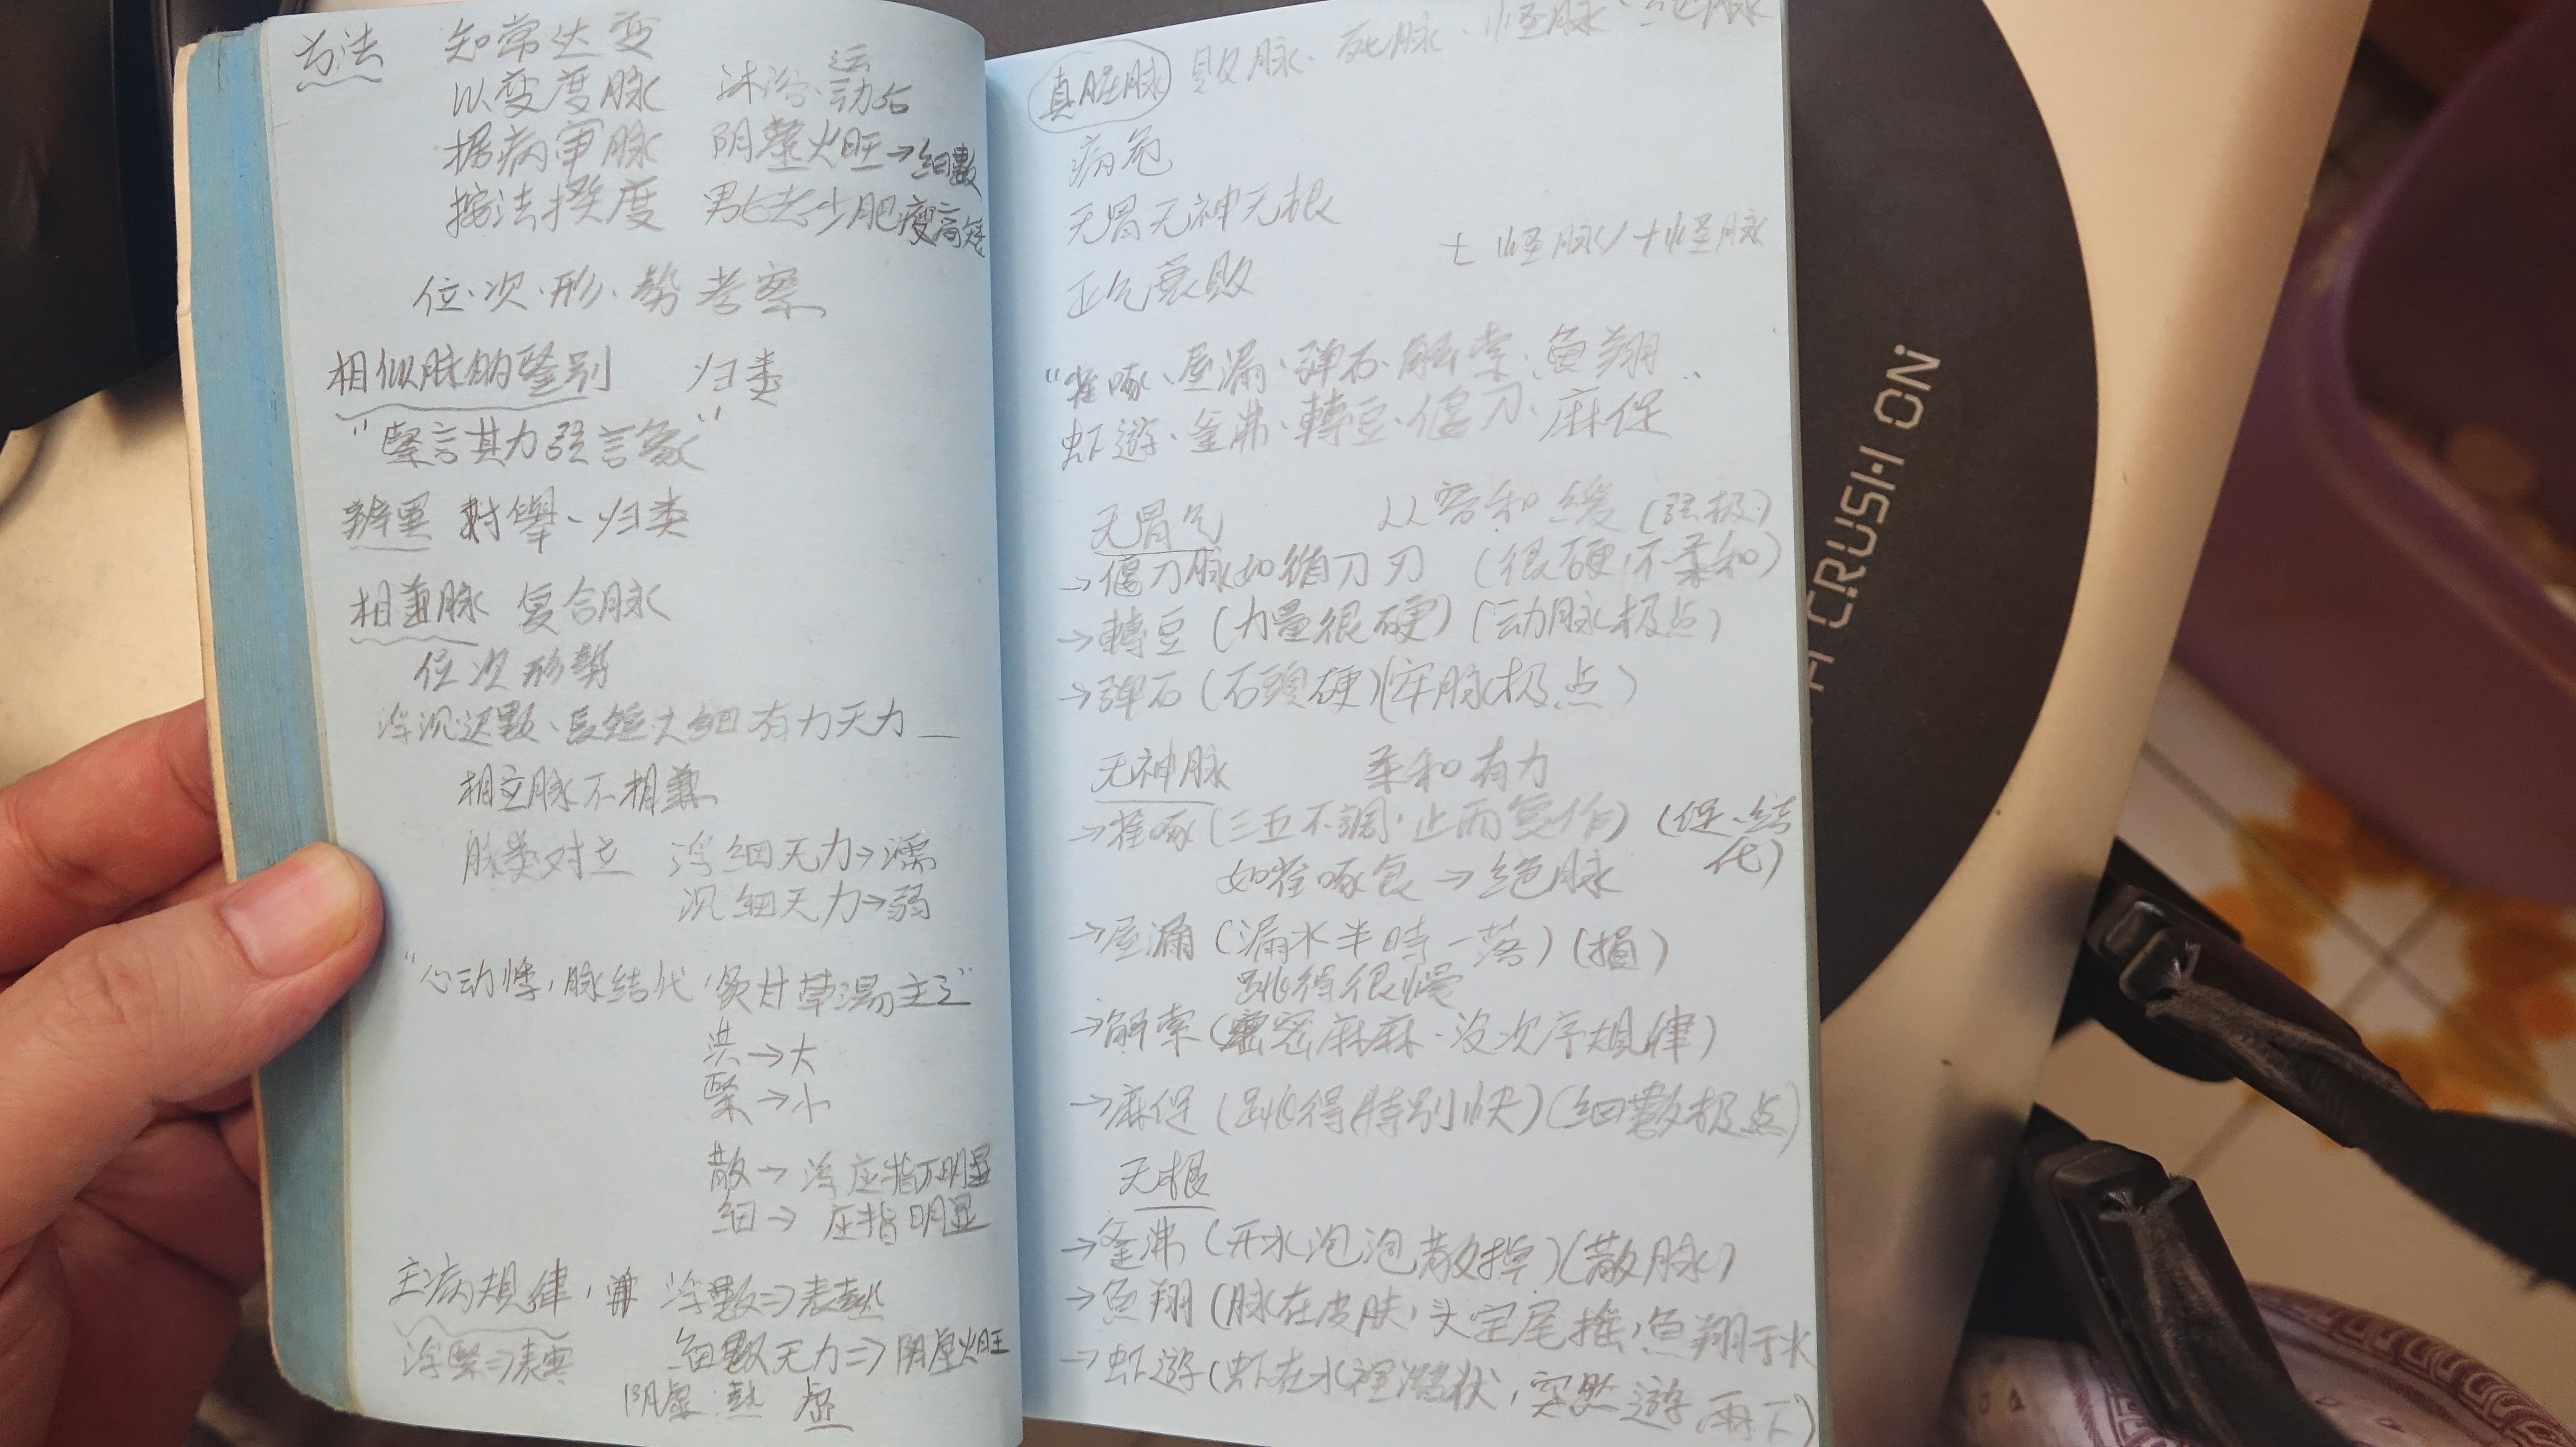 方法 知常达变
以变度脉 沐浴、运动后
据病审脉 阴虛火旺→细數
按法揆度 男女老少肥瘦高矮
位、次、形、势考察
相似脉的鑒别 归类
"緊言其力弦言象"
辨異 對舉、归类
相兼脉 复合脉
位次形势
浮沉迟數、長短大细有力无力
相立脉不相兼
脉类对立 浮细无力→濡
沉细无力→弱
"心动悸,脉结代,炙甘草湯主之"
洪→大
緊→小
散→浮 应指不明显
细→ 应指明显
主病規律,兼 浮數⇒表热
浮緊⇒表寒 细數无力⇒阴虛火旺
阴虛 热 虛
真脏脉 敗脉、死脉、怪脉、绝脉
病危
无胃无神无根
七怪脉/十怪脉
正气衰敗
"雀啄、屋漏、弹石、解索、魚翔
虾遊、釜沸、轉豆、偃刀、麻促"
无胃气 从容和缓(弦极)
→偃刀脉如循刀刃 (很硬,不柔和)
→轉豆(力量很硬)(动脉极点)
→弹石(石頭硬)(牢脉极点)
无神脉 柔和有力
→雀啄(三五不調,止而复作) (促、结代)
如雀啄食→绝脉
→屋漏(漏水半時一落)(損)
跳得很慢
→解索(密密麻麻、没次序規律)
→麻促(跳得特别快)(细數极点)
无根
→釜沸(开水泡泡散掉)(散脉)
→魚翔(脉在皮肤,头定尾摇,魚翔于水
→虾遊(虾在水裡 状,突然遊兩下)
CRUSH ON